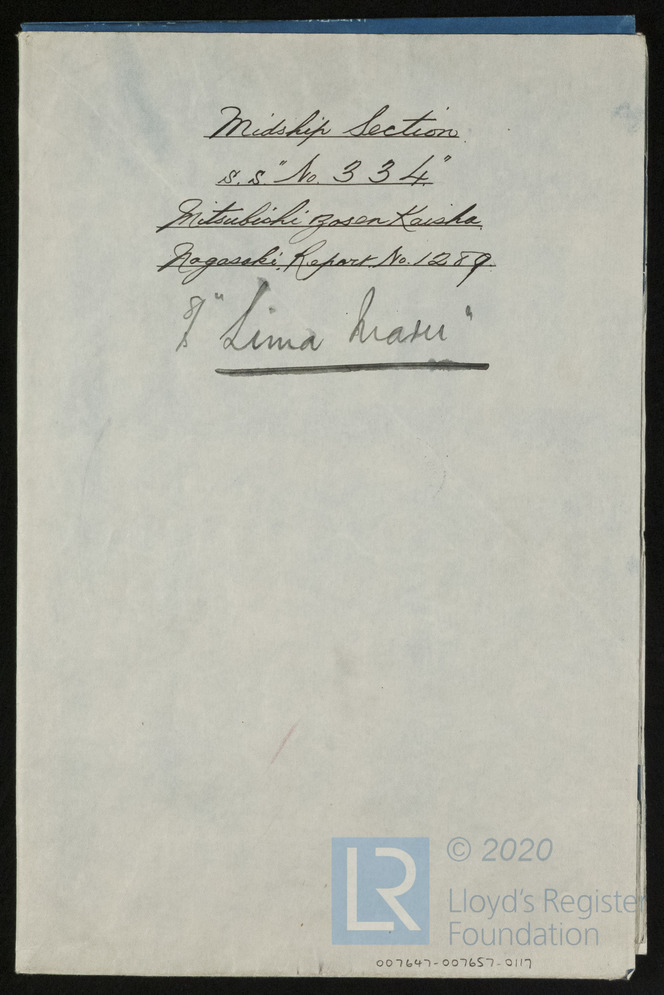 Midship Section
S.S. "No. 334"
Mitsubishi Zosen Kaisha
Nagasaki Report No. 1289
"Lima Maru"
LR
© 2020
Lloyd's Register
Foundation
007647-007657-0117